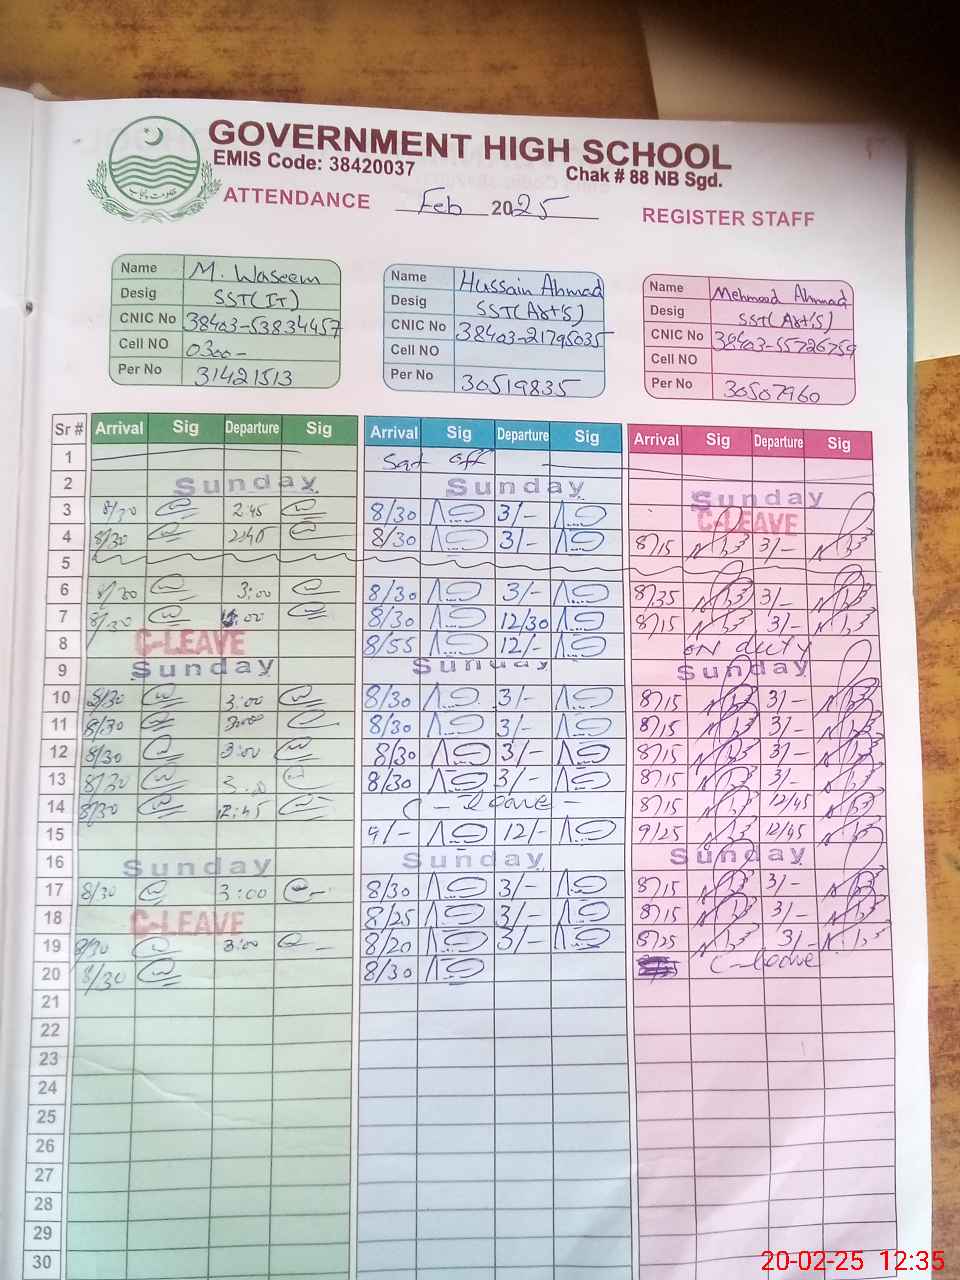 GOVERNMENT HIGH SCHOOL
EMIS Code: 38420037
Chak # 88 NB Sgd.
ATTENDANCE Feb 2025 REGISTER STAFF
حکومت پنجاب
Name M. Waseem
Desig SST(IT)
CNIC No 38403-53834457
Cell NO 0300-
Per No 31421513
Name Hussain Ahmad
Desig SST(Arts)
CNIC No 38403-21795035
Cell NO
Per No 30519835
Name Mehmood Ahmad
Desig SST(Arts)
CNIC No 38403-55726759
Cell NO
Per No 30507960
Sr # Arrival Sig Departure Sig Arrival Sig Departure Sig Arrival Sig Departure Sig
1 Sat off
2 Sunday Sunday Sunday
3 8/30 2:45 8/30 3/- C-LEAVE
4 8/30 2:45 8/30 3/- 8/15 3/-
5
6 8/30 3:00 8/30 3/- 8/35 3/-
7 8/30 :00 8/30 12/30 8/15 3/-
8 C-LEAVE 8/55 12/- on duty
9 Sunday Sunday Sunday
10 8/30 3:00 8/30 3/- 8/15 3/-
11 8/30 3:00 8/30 3/- 8/15 3/-
12 8/30 3:00 8/30 3/- 8/15 3/-
13 8/30 8/30 3/- 8/15 3/-
14 8/30 12:45 C-leave - 8/15 12/45
15 9/- 12/- 9/25 12/45
16 Sunday Sunday Sunday
17 8/30 3:00 8/30 3/- 8/15 3/-
18 C-LEAVE 8/25 3/- 8/15 3/-
19 8/30 3:00 8/20 3/- 8/25 3/-
20 8/30 8/30 C-leave
21
22
23
24
25
26
27
28
29
30
20-02-25 12:35